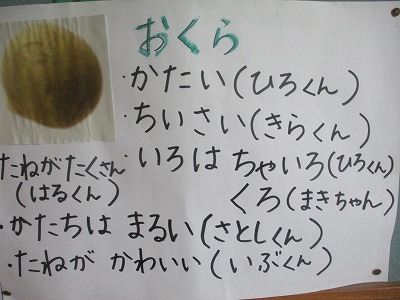 おくら
・かたい(ひろくん)
・ちいさい(きらくん)
・いろは ちゃいろ(ひろくん)
くろ(まきちゃん)
たねがたくさん
(はるくん)
・かたちは まるい(さとしくん)
・たねが かわいい(いぶくん)